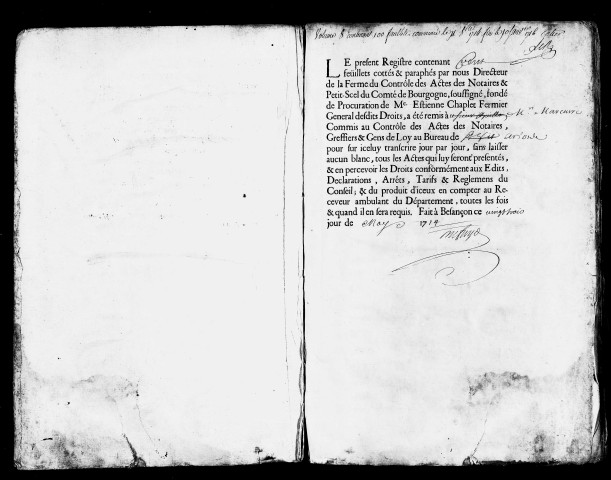 contenant 100 feuillets
LE present Registre contenant Cent
feüillets cottés & paraphés par nous Directeur
de la Ferme du Contrôle des Actes des Notaires &
Petit-Scel du Comté de Bourgogne, soussigné, fondé
de Procuration de Me. Estienne Chaplet Fermier
General desdits Droits, a été remis à
Commis au Contrôle des Actes des Notaires,
Greffiers & Gens de Loy au Bureau de
pour sur iceluy transcrire jour par jour, sans laisser
aucun blanc, tous les Actes qui luy seront presentés,
& en percevoir les Droits conformément aux Edits,
Declarations, Arrêts, Tarifs & Reglemens du
Conseil; & du produit d'iceux en compter au Re-
ceveur ambulant du Département, toutes les fois
& quand il en sera requis. Fait à Besançon ce vingt trois
jour de May 1714